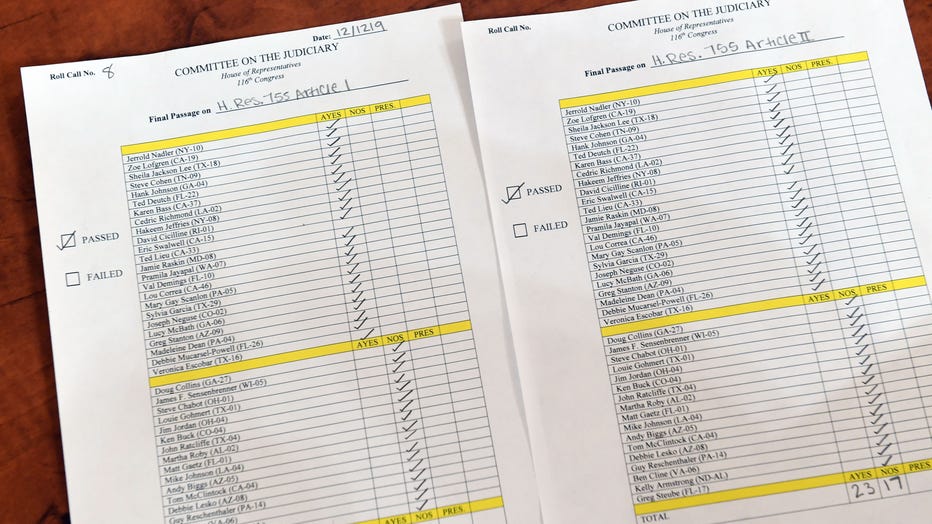 Date: 12/1219
Roll Call No. 8
COMMITTEE ON THE JUDICIARY
House of Representatives
116th Congress
Final Passage on H. Res. 755 Article I
PASSED
FAILED
AYES NOS PRES.
Jerrold Nadler (NY-10)
Zoe Lofgren (CA-19)
Sheila Jackson Lee (TX-18)
Steve Cohen (TN-09)
Hank Johnson (GA-04)
Ted Deutch (FL-22)
Karen Bass (CA-37)
Cedric Richmond (LA-02)
Hakeem Jeffries (NY-08)
David Cicilline (RI-01)
Eric Swalwell (CA-15)
Ted Lieu (CA-33)
Jamie Raskin (MD-08)
Pramila Jayapal (WA-07)
Val Demings (FL-10)
Lou Correa (CA-46)
Mary Gay Scanlon (PA-05)
Sylvia Garcia (TX-29)
Joseph Neguse (CO-02)
Lucy McBath (GA-06)
Greg Stanton (AZ-09)
Madeleine Dean (PA-04)
Debbie Mucarsel-Powell (FL-26)
Veronica Escobar (TX-16)
AYES NOS PRES
Doug Collins (GA-27)
James F. Sensenbrenner (WI-05)
Steve Chabot (OH-01)
Louie Gohmert (TX-01)
Jim Jordan (OH-04)
Ken Buck (CO-04)
John Ratcliffe (TX-04)
Martha Roby (AL-02)
Matt Gaetz (FL-01)
Mike Johnson (LA-04)
Andy Biggs (AZ-05)
Tom McClintock (CA-04)
Debbie Lesko (AZ-08)
Guy Reschenthaler (PA-14)
(VA-06)
AYES NOS PRES.
Roll Call No.
COMMITTEE ON THE JUDICIARY
House of Representatives
116th Congress
Final Passage on H. Res. 755 Article II
PASSED
FAILED
AYES NOS PRES.
Jerrold Nadler (NY-10)
Zoe Lofgren (CA-19)
Sheila Jackson Lee (TX-18)
Steve Cohen (TN-09)
Hank Johnson (GA-04)
Ted Deutch (FL-22)
Karen Bass (CA-37)
Cedric Richmond (LA-02)
Hakeem Jeffries (NY-08)
David Cicilline (RI-01)
Eric Swalwell (CA-15)
Ted Lieu (CA-33)
Jamie Raskin (MD-08)
Pramila Jayapal (WA-07)
Val Demings (FL-10)
Lou Correa (CA-46)
Mary Gay Scanlon (PA-05)
Sylvia Garcia (TX-29)
Joseph Neguse (CO-02)
Lucy McBath (GA-06)
Greg Stanton (AZ-09)
Madeleine Dean (PA-04)
Debbie Mucarsel-Powell (FL-26)
Veronica Escobar (TX-16)
AYES NOS PRES
Doug Collins (GA-27)
James F. Sensenbrenner (WI-05)
Steve Chabot (OH-01)
Louie Gohmert (TX-01)
Jim Jordan (OH-04)
Ken Buck (CO-04)
John Ratcliffe (TX-04)
Martha Roby (AL-02)
Matt Gaetz (FL-01)
Mike Johnson (LA-04)
Andy Biggs (AZ-05)
Tom McClintock (CA-04)
Debbie Lesko (AZ-08)
Guy Reschenthaler (PA-14)
Ben Cline (VA-06)
Kelly Armstrong (ND-AL)
Greg Steube (FL-17)
AYES NOS PRES.
TOTAL 23 17